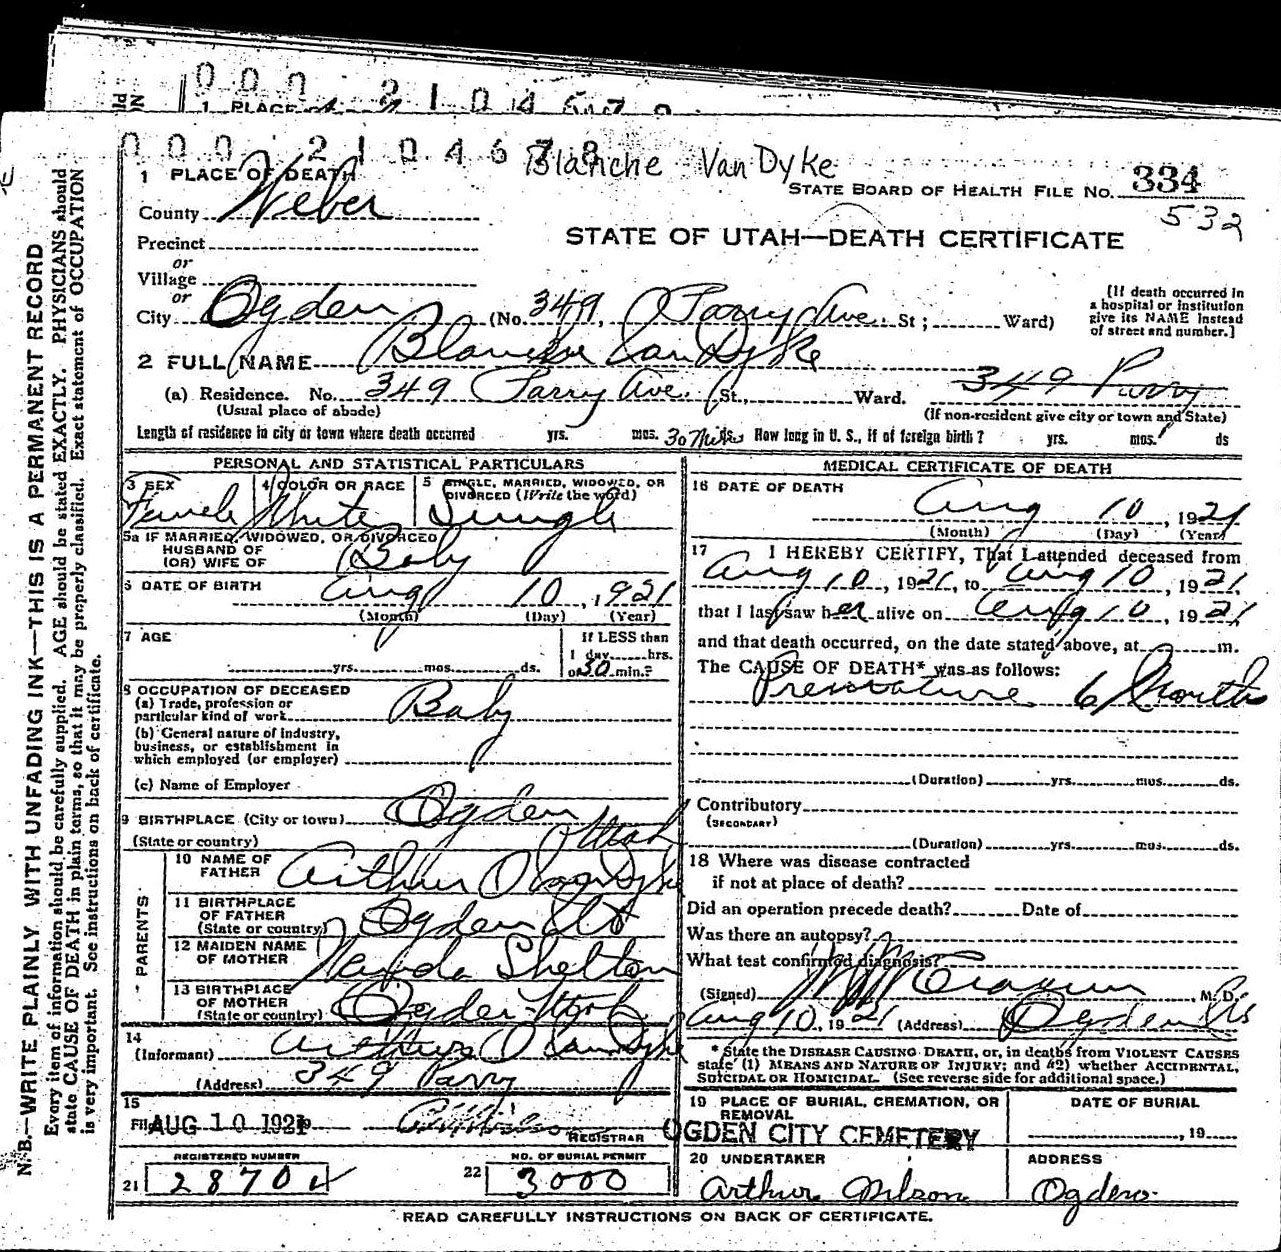 000 2104678
1 PLACE OF
000 2104678
Blanche VanDyke
1 PLACE OF DEATH
STATE BOARD OF HEALTH FILE NO. 334
County Weber
532
Precinct
STATE OF UTAH—DEATH CERTIFICATE
or
Village
or
City Ogden (No. 349, Parry Ave. St; Ward)
[If death occurred in
a hospital or institution
give its NAME instead
of street and number.]
2 FULL NAME Blanche Van Dyke
(a) Residence. No. 349 Parry Ave. St., Ward. 349 Parry
(Usual place of abode) (If non-resident give city or town and State)
Length of residence in city or town where death occurred yrs. mos. 30 Mits. How long in U. S., if of foreign birth? yrs. mos. ds
PERSONAL AND STATISTICAL PARTICULARS
3 SEX 4 COLOR OR RACE 5 SINGLE, MARRIED, WIDOWED, OR
DIVORCED (Write the word)
Female White Single
5a IF MARRIED, WIDOWED, OR DIVORCED
HUSBAND OF
(OR) WIFE OF Baby
6 DATE OF BIRTH Aug 10, 1921
(Month) (Day) (Year)
7 AGE If LESS than
1 day hrs.
yrs. mos. ds. or 30 min.?
8 OCCUPATION OF DECEASED
(a) Trade, profession or
particular kind of work Baby
(b) General nature of industry,
business, or establishment in
which employed (or employer)
(c) Name of Employer
9 BIRTHPLACE (City or town) Ogden
(State or country) Utah
PARENTS
10 NAME OF
FATHER Arthur O VanDyke
11 BIRTHPLACE
OF FATHER
(State or country) Ogden Ut
12 MAIDEN NAME
OF MOTHER Shelton
13 BIRTHPLACE
OF MOTHER
(State or country) Ogden Utah
14
(Informant) Arthur O VanDyke
(Address) 349 Parry
15
Filed AUG 10 1921
REGISTRAR
REGISTERED NUMBER NO. OF BURIAL PERMIT
21 2870 22 3000
MEDICAL CERTIFICATE OF DEATH
16 DATE OF DEATH
Aug 10, 1921
(Month) (Day) (Year)
17 I HEREBY CERTIFY, That I attended deceased from
Aug 10, 1921, to Aug 10, 1921,
that I last saw her alive on Aug 10, 1921,
and that death occurred, on the date stated above, at m.
The CAUSE OF DEATH* was as follows:
Premature 6 Months
(Duration) yrs. mos. ds.
Contributory
(SECONDARY)
(Duration) yrs. mos. ds.
18 Where was disease contracted
if not at place of death?
Did an operation precede death? Date of
Was there an autopsy?
What test confirmed diagnosis?
(Signed) , M. D.
Aug 10, 1921 (Address) Ogden
* State the DISEASE CAUSING DEATH, or, in deaths from VIOLENT CAUSES
state (1) MEANS AND NATURE OF INJURY; and (2) whether ACCIDENTAL,
SUICIDAL OR HOMICIDAL. (See reverse side for additional space.)
19 PLACE OF BURIAL, CREMATION, OR
REMOVAL
DATE OF BURIAL
OGDEN CITY CEMETERY , 19
20 UNDERTAKER ADDRESS
Arthur Ogden
READ CAREFULLY INSTRUCTIONS ON BACK OF CERTIFICATE.
N. B.—WRITE PLAINLY WITH UNFADING INK—THIS IS A PERMANENT RECORD
Every item of information should be carefully supplied. AGE should be stated EXACTLY. PHYSICIANS should
state CAUSE OF DEATH in plain terms, so that it may be properly classified. Exact statement of OCCUPATION
is very important. See instructions on back of certificate.